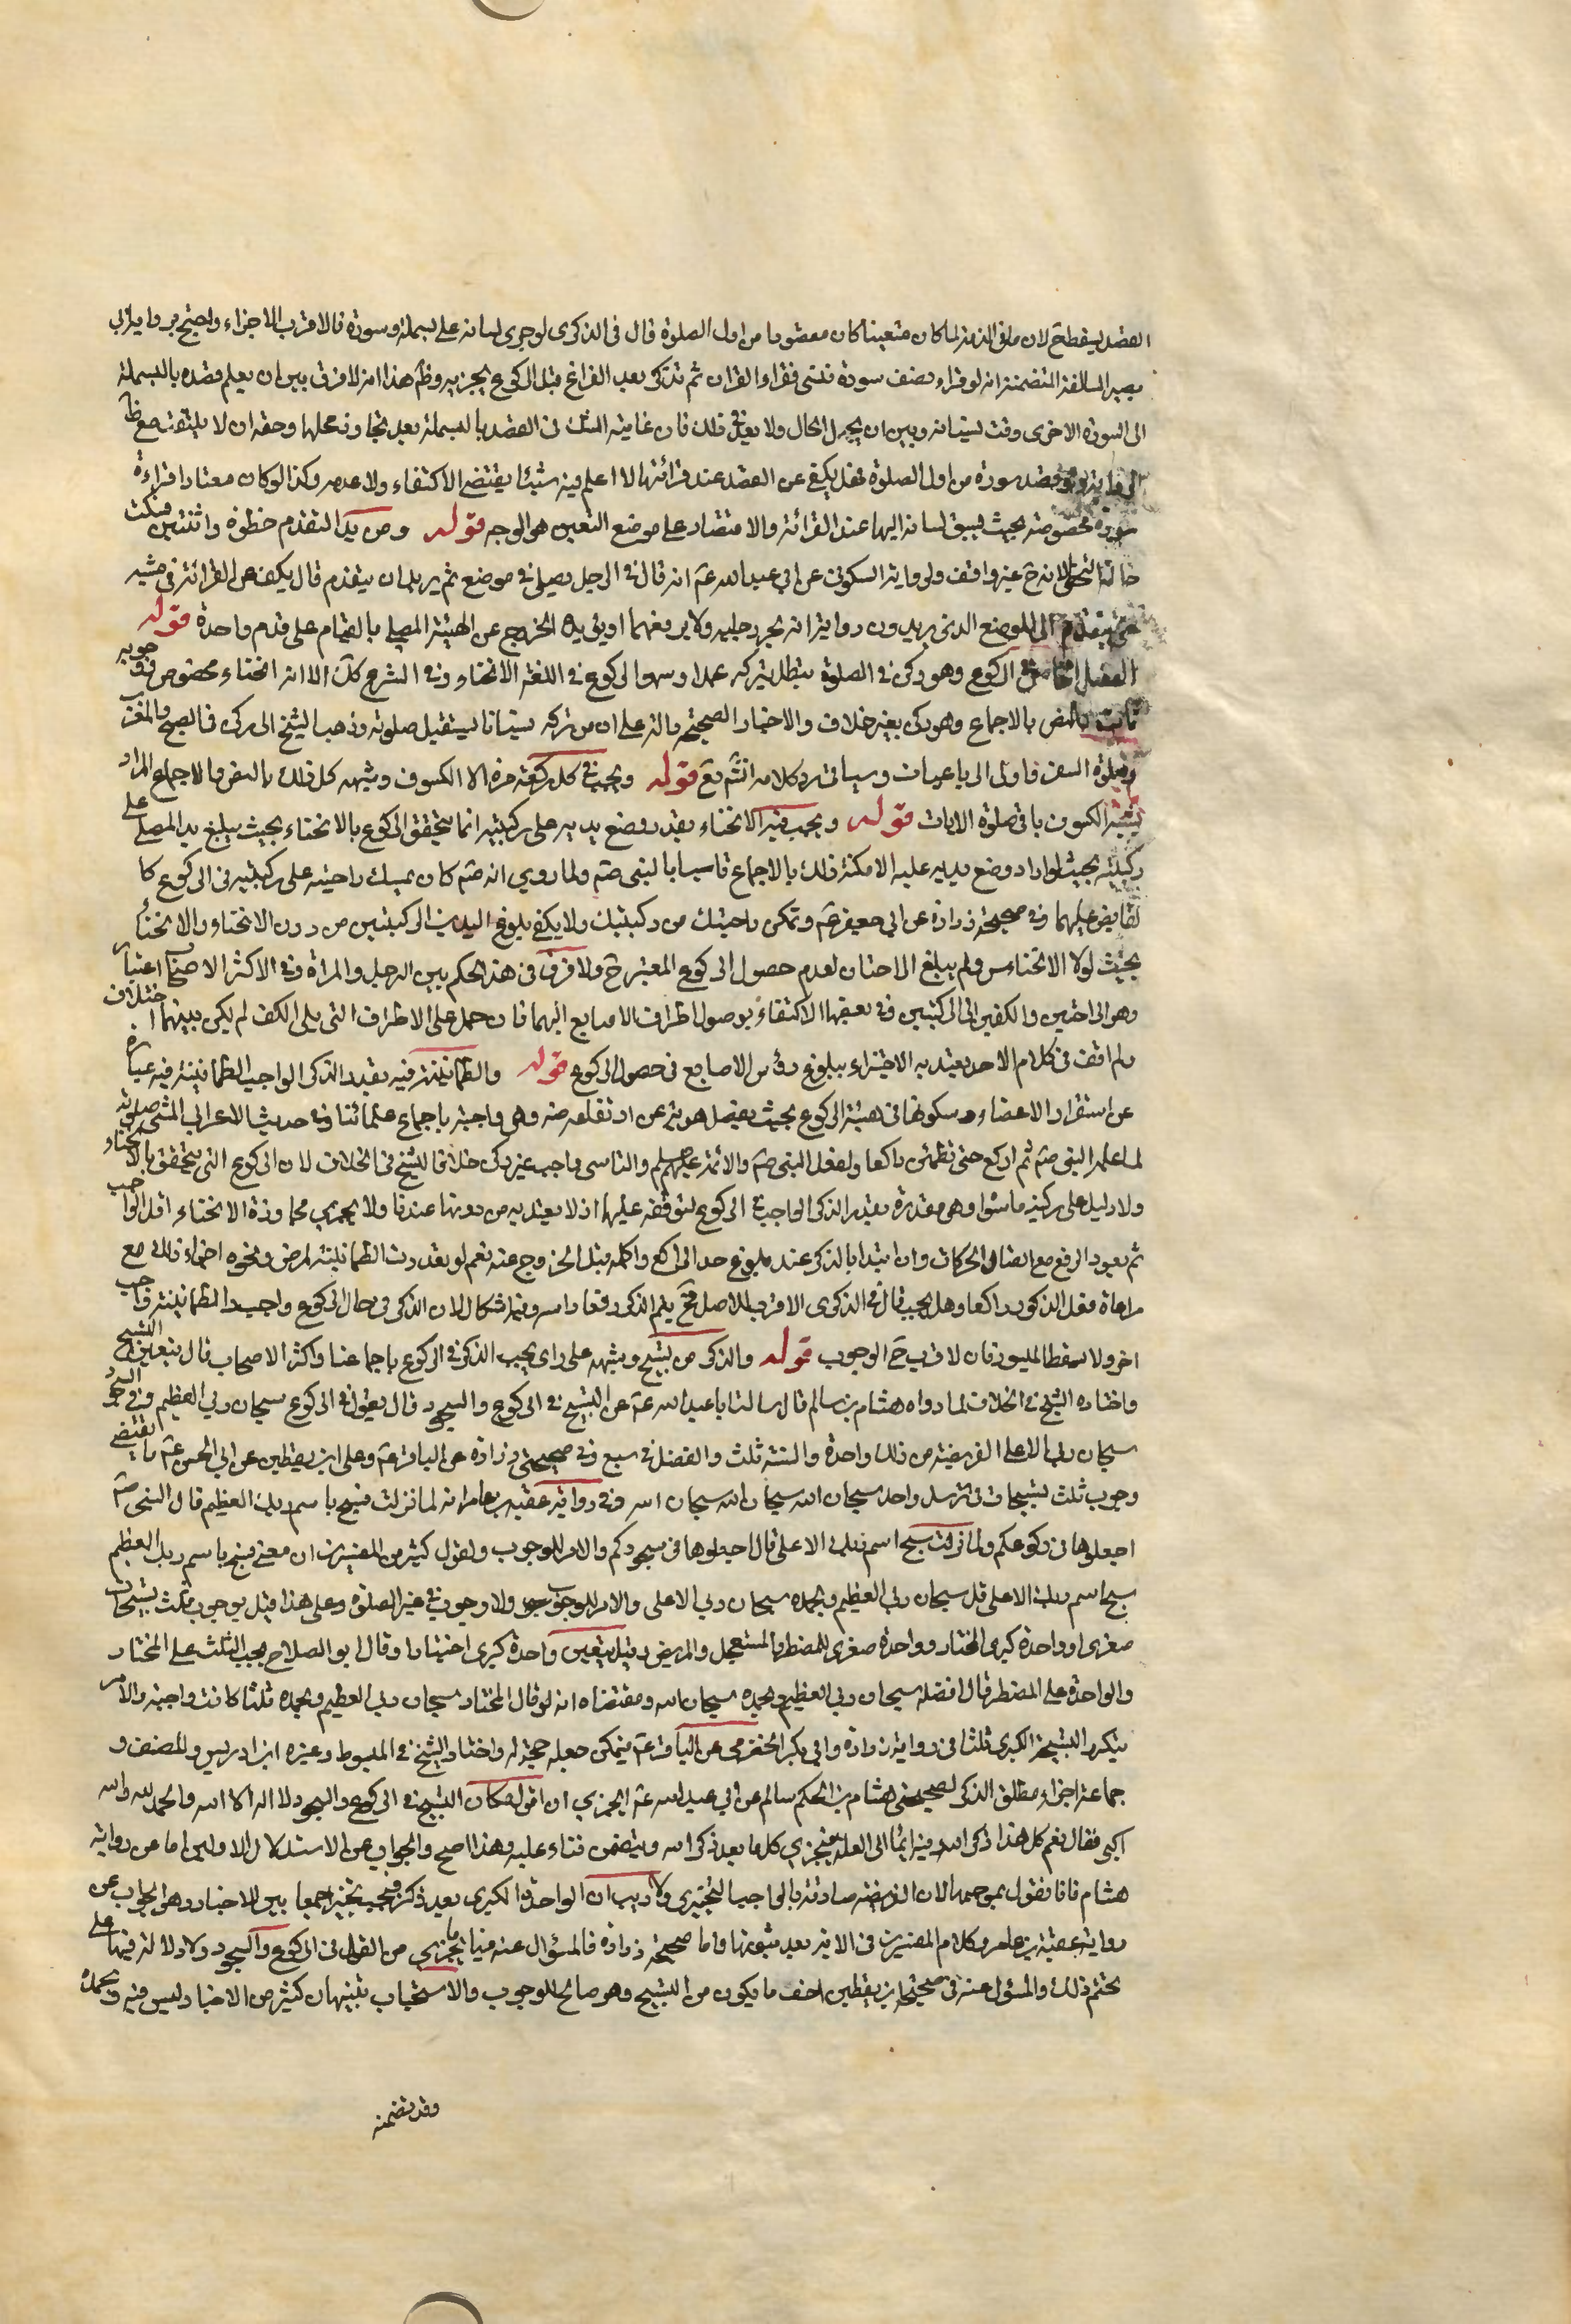 القصد يسقط ح لان ما فى الذمة لما كان متعينا كان مقصودا من اول الصلوة قال فى الذكرى لو جرى لسانه على بسملة وسورة فالاقرب الاجزاء ولصحيح بر واية ابى
بصير السالفة المتضمنة انه لو قراء نصف سورة فنسى فقراء القران ثم تذكر بعد الفراغ قبل الركوع يجزيه وظ هذا انه لا فرق بين ان يعلم قصده بالبسملة
الى السورة الاخرى وقت نسيانه وبين ان يجهل الحال ولا بعد فى ذلك فان غايته الشك فى القصد بالبسملة بعد تجاوز محلها وحقه ان لا يلتفت مع ظ
الرواية ولو قصد سورة من اول الصلوة فهل يكفى عن القصد عند قرائتها لا اعلم فيه شيئا يقتضى الاكتفاء ولا عدمه وكذا لو كان معتادا قراءة
سورة مخصوصة بحيث يسبق لسانه اليها عند القرائة والاقتصار على موضع التعين هو الوجه قوله ومريد التقدم خطوة واثنتين يسكت
حالة التخطى لانه ح غير واقف ولرواية السكونى عن ابى عبد الله عم انه قال فى الرجل يصلى فى موضع ثم يريد ان يتقدم قال يكف عن القرائة فى مشيه
حتى يتقدم الى الموضع الذى يريد وينبغى ان يجر رجليه ولا يرفعهما الخروج عن الهيئة المصلى بالقيام على قدم واحدة قوله
الفصل الخامس فى الركوع وهو ركن فى الصلوة تبطل بتركه عمدا وسهوا الركوع فى اللغة الانحناء وفى الشرع كك الا انه انحناء مخصوص ووجوبه
ثابت بالنص بالاجماع وهو ركن بغير خلاف والاخبار الصحيحة دالة على ان من تركه نسيانا يستقبل صلوته وذهب الشيخ الى ركن فى الصبح والمغرب
وصلوة السفر فاولى الرباعيات وسياتى رد كلامه انش تع قوله ويجب فى كل ركعة مرة الا الكسوف وشبهه كل ذلك بالنص والاجماع المراد
بشبه الكسوف باقى صلوة الايات قوله ويجب فيه الانحناء بقدر وضع يديه على ركبتيه انما يتحقق الركوع بالانحناء بحيث يبلغ يد المصلى على
ركبتيه بحيث لو اراد وضع يديه عليه لامكنه ذلك بالاجماع تاسيا بالنبى صم ولما روي انه صم كان يمسك راحتيه على ركبتيه فى الركوع كا
لقابض عليهما وفى صحيحة زرارة عن ابي جعفر عم وتمكن راحتيك من ركبتيك ولا يكفى بلوغ اليدين الركبتين من دون الانحناء والانخناس
بحيث لولا الانخناس ولم يبلغ الراحتان لعدم حصول الركوع المعتبر ح ولا فرق فى هذا الحكم بين الرجل والمراة وفى الاكثر الاصحاب اعتبار
وصول الراحتين والكفين الى الركبتين وفى بعضها الاكتفاء بوصول اطراف الاصابع اليهما فان حمل على الاطراف التى يلى الكف لم يكن بينهما اختلاف
ولم اقف فى كلام لاحد يعتد به الاجتزاء ببلوغ رؤس الاصابع فى حصول الركوع قوله والطمانينة فيه بقدر الذكر الواجب الطمانينة فيه عبارة
عن استقرار الاعضاء وسكونها فى هيئة الركوع بحيث ينفصل هويه عن ارتفاعه منه وهى واجبة باجماع علمائنا وفى حديث الاعرابى المسئ صلوته
لما علمه النبى صم ثم اركع حتى تطمئن راكعا ولفعل النبى صم والائمة علیهم السلم والتاسى واجب غير ركن خلافا للشيخ فى الخلاف لان الركوع الذى يتحقق بالانحناء
ولا دليل على ركنية ما سوا وهى مقدرة بقدر الذكر الواجب فى الركوع لتوقفه عليها اذ لا يعتد به من دونها عندنا ولا يجزى مجاوزة الانحناء اقل الواجب
ثم يعود الرفع مع اتصال الحركات وان ابتدا بالذكر عند بلوغ حد الراكع واكمله قبل الخروج عنه نعم لو تعذرت الطمانينة لمرض ونحوه اجزاء ذلك مع
مراعاة فعل الذكر راكعا وهل يجب قال فى الذكرى الاقرب لا للاصل فح يتم الذكر رافعا راسه وفيه اشكال لان الذكر فى حال الركوع واجب والطمانينة واجب
اخر ولا يسقط الميسور فان لاقرب ح الوجوب قوله والذكر من تسبيح وشبهه على راى يجب الذكر فى الركوع باجماعنا واكثر الاصحاب قال بتعين التسبيح
واختاره الشيخ فى الخلاف لما رواه هشام بن سالم قال سالت ابا عبد الله عم عن التسبيح فى الركوع والسجود قال يقول فى الركوع سبحان ربى العظيم وفى السجود
سبحان ربى الاعلى الفريضة من ذلك واحدة والسنة ثلث والفضل فى سبع وفى صحيحتى زرارة عن الباقر عم وعلى ابن يقطين عن ابي الحسن عم ما يقتضى
وجوب ثلث تسبيحات فى ترسل واحد سبحان الله سبحان الله سبحان الله وفى رواية عقبة بن عامر انه لما نزلت فسبح باسم ربك العظيم قال النبى صم
اجعلوها فى ركوعكم ولما نزلت سبح اسم ربك الاعلى قال اجعلوها فى سجودكم والامر للوجوب ولقول كثير من المفسرين ان معنى فسبح باسم ربك العظيم
سبح اسم ربك الاعلى قل سبحان ربى العظيم وبحمده سبحان ربى الاعلى والامر للوجوب ولا وجوب فى غير الصلوة وعلى هذا قيل بوجوب ثلث تسبيحات
صغرى او واحدة كبرى للمختار وواحدة صغرى للمضطر والمستعجل والمريض وقيل بتعين واحدة كبرى اختيارا وقال ابو الصلاح يجب الثلث على المختار
والواحدة على المضطر قال افضله سبحان ربى العظيم وبحمده سبحان الله ومقتضاه انه لو قال المختار سبحان ربى العظيم وبحمده ثلثا كانت واجبة والامر
بتكرر التسبيحة الكبرى ثلثا فى رواية زرارة وابي بكر الحضرمى عن الباقر عم فيمكن جعله حجة له واختار الشيخ فى المبسوط وغيره ابن ادريس والمصنف و
جماعة اجزاء مطلق الذكر لصحيحتى هشام بن الحكم سالم عن ابي عبد الله عم ايجزى ان اقول مكان التسبيح فى الركوع والسجود لا اله الا الله والحمد لله والله
اكبر فقال نعم كل هذا ذكر الله وفيه ايماء الى العلة فيجزي كل ما يعد ذكر الله ويتضمن ثناء عليه وهذا اصح والجواب عن الاستدلال الاولين اما عن رواية
هشام فانا نقول بموجبها لان الفريضة صادقة بالواجب التخييرى ولا ريب ان الواحدة الكبرى يعد ذكرا فيجب تخييرا جمعا بين الاخبار وهو الجواب عن
رواية عقبة بن عامر وكلام المفسرين فى الاية بعد ثبوتها واما صحيحة زرارة فالمسؤال عنه فيها ما يجزى من القول فى الركوع والسجود ولا دلالة فيها على
تحتم ذلك والمسؤل عنه فى صحيحة ابن يقطين اخف ما يكون من التسبيح وهو صالح للوجوب والاستحباب تنبيهان كثير من الاخبار ليس فيه وبحمده
وقد تضمنه